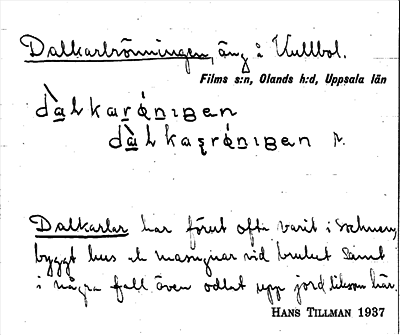 Dalkarlrönningen, äng i Kullbol.
Films s:n, Olands h:d, Uppsala län
Dalkarlar har förut ofta varit i socknen,
byggt hus och masugnar vid bruket samt
i några fall även odlat upp jord liksom här.
HANS TILLMAN 1937